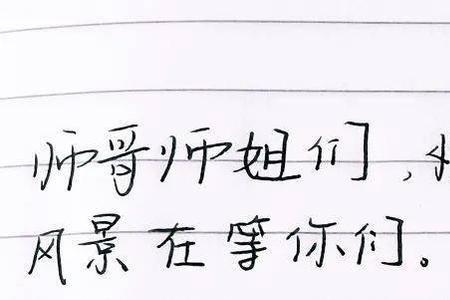 师哥师姐们,
风景在等你们。